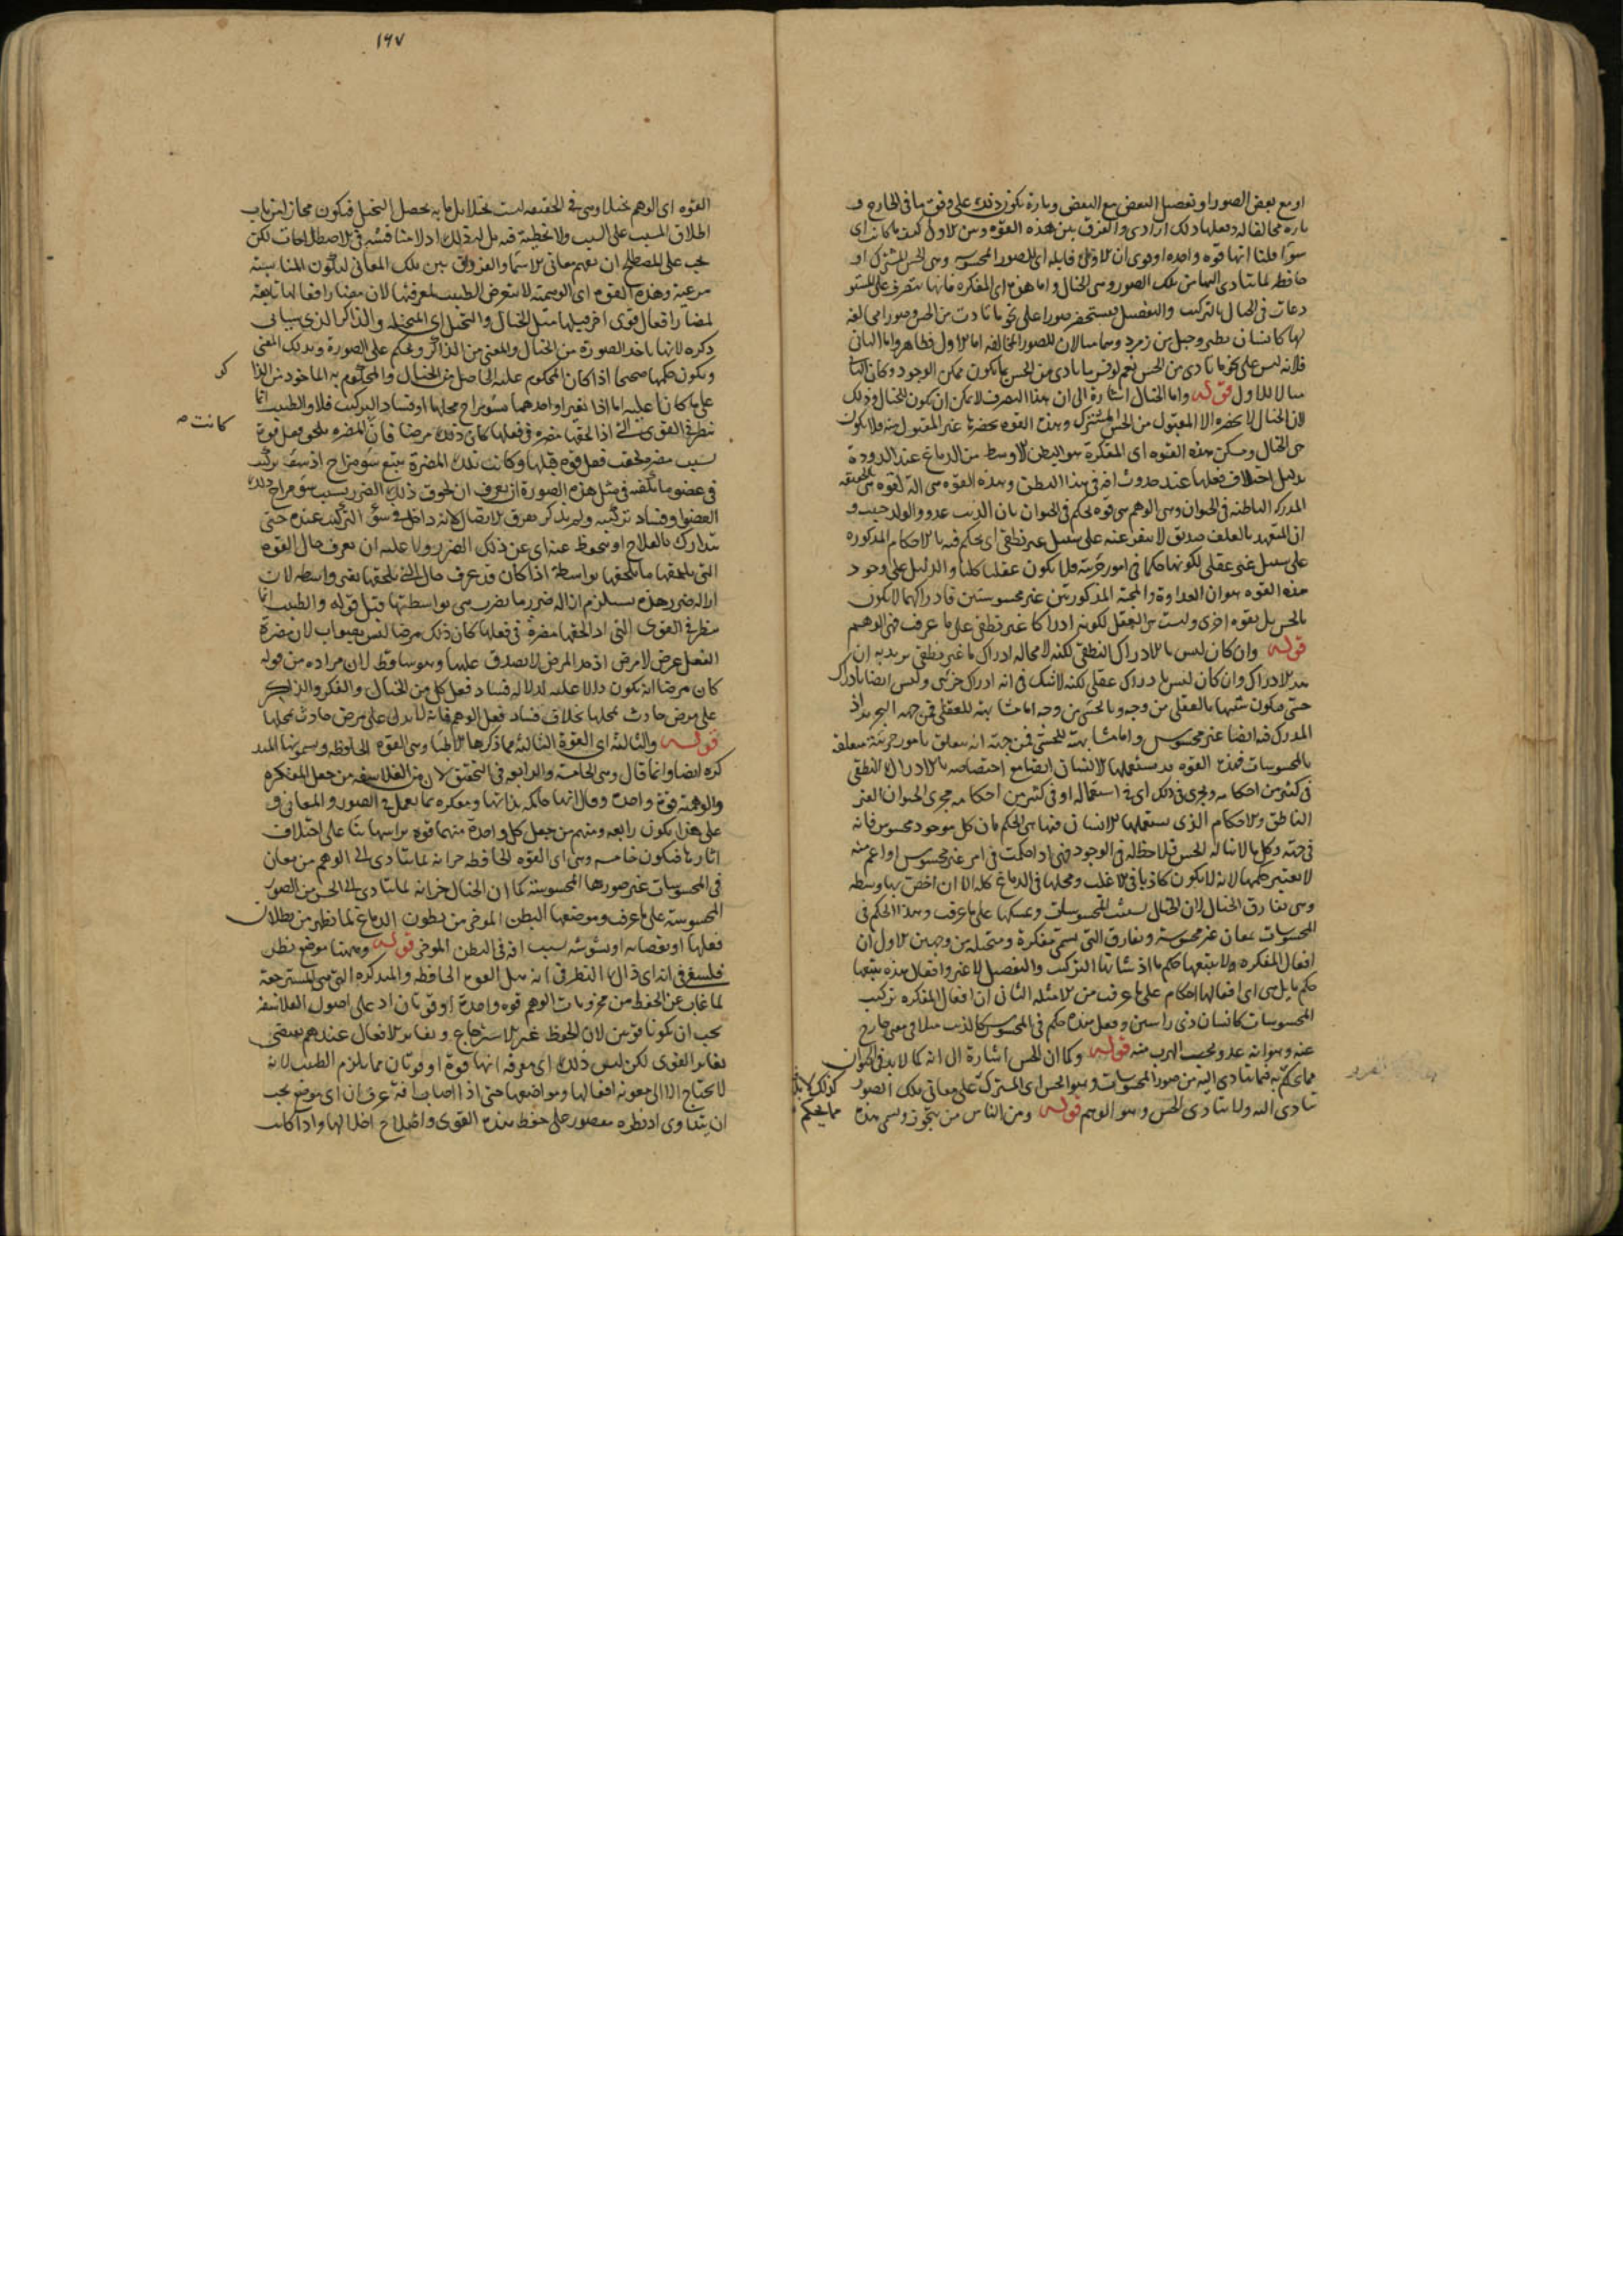 او مع بعض الصور او تفصيل البعض مع البعض وتارة يكون ذلك على وفق ما فى الخارج و
تارة مخالفا له وفعلها ذلك ارادى والفرق بين هذه القوة وبين الاول كيف ما كانت اى
سواء قلنا انها قوة واحدة او قوى ان الاول قابلة اى للصور المحسوسة وهى الحس المشترك او
حافظة لما يتادى اليها من تلك الصور وهى الخيال واما هذه اى المفكرة فانها تتصرف على المستو
دعات فى الخيال بالتركيب والتفصيل فيستحضر صورا على نحو ما تادت من الحس وصورا مخالفة
لها كانسان يطير وجبل من زمرد وهما مثالان للصور المخالفة اما الاول فظاهر واما الثانى
فلانه ليس على نحو ما تادى من الحس نعم لو قيس ما تادى من الحس بما يكون ممكن الوجود وكان الثا
مثالا للاول قوله واما الخيال اشارة الى ان هذا التصرف لا يمكن ان يكون للخيال وذلك
لان الخيال لا يحضره الا المقبول من الحس المشترك وهذه القوة يحضرها غير المقبول منه فلا يكون
هى الخيال ومسكن هذه القوة اى المفكرة هو البطن الاوسط من الدماغ عند الدودة
بدليل اختلاف فعلها عند حدوث افة فى هذا البطن وهذه القوة هى الة لقوة هى الحقيقة
المدركة الباطنة فى الحيوان وهى الوهم هى قوة تحكم فى الحيوان بان الذئب عدو والولد حبيب و
ان المتعهد بالعلف صديق لا ينفر عنه على سبيل غير نطقى اى يحكم فيه بالاحكام المذكورة
على سبيل غير عقلى لكونها حكما فى امور جزئية فلا يكون عقليا كليا والدليل على وجود
هذه القوة هو ان العداوة والمحبة المذكورتين غير محسوستين فادراكهما لا يكون
بالحس بل بقوة اخرى وليست هى العقل لكونه ادراكا غير نطقى على ما عرف فهى الوهم
قوله وان كان ليس بالادراك النطقى لكنه لا محالة ادراك ما غير نطقى يريد به ان
هذا الادراك وان كان ليس بادراك عقلى لكنه لا شك فى انه ادراك جزئى وليس ايضا بادراك
حسى فيكون شبيها بالعقلى من وجه وبالحسى من وجه اما مشابهته للعقلى فمن جهة التجريد اذ
المدرك فيه ايضا غير محسوس واما مشابهته للحسى فمن جهة انه متعلق بامور جزئية متعلقة
بالمحسوسات فهذه القوة قد يستعملها الانسان ايضا مع اختصاصه بالادراك النطقى
فى كثير من احكامه ويجرى فى ذلك اى فى استعماله او فى كثير من احكامه مجرى الحيوان الغير
الناطق والاحكام الذى يستعملها الانسان فيها هى الحكم بان كل موجود محسوس فانه
فى جهة وكل ما لا يناله الحس فلا حظ له فى الوجود فهى اذا حكمت فى امر غير محسوس او اعم منه
لا يعتبر حكمها لانه لا يكون كاذبا فى الاغلب ومحلها فى الدماغ كله الا ان اخص بها وسطه
وهى تفارق الخيال لان الخيال يستثبت المحسوسات ويمسكها على ما عرفت وهذا الحكم فى
المحسوسات بمعان غير محسوسة وتفارق التى يسمى مفكرة ومتخيلة من وجهين الاول ان
افعال المفكرة ولا يتبعها حكم ما اذ شانها التركيب والتفصيل لا غير وافعال هذه يتبعها
حكم ما بل هى اى افعالها احكام على ما عرفت من الامثلة الثانى ان افعال المفكرة تركيب
المحسوسات كانسان ذى راسين وفعل هذه حكم فى المحسوس كالذئب مثلا فى معنى خارج
عنه وهو انه عدو يجب الهرب منه قوله وكما ان للحس اشارة الى انه كما لا بد فى الحيوان
مما يحكم به فيما يتادى اليه من صور المحسوسات وهو الحس اى المشترك على معانى تلك الصور كذلك لا بد
تتادى اليه ولا يتادى للحس وهو الوهم قوله ومن الناس من يتجوز ويسمى هذه مما يحكم
١٦٧
القوة اى الوهم تخيلا وهى فى الحقيقة ليست تخيلا بل ما به يحصل التخيل فيكون مجازا من باب
اطلاق المسبب على السبب ولا تخطئة فيه بل له ذلك اذ لا مناقشة فى الاصطلاحات لكن
يجب على المصطلح ان يفهم معانى الاسماء والفروق بين تلك المعانى ليكون المناسبة
مرعية وهذه القوة اى الوهمية لا يتعرض الطبيب لمعرفتها لان مضار افعالها تابعة
لمضار افعال قوى اخر قبلها مثل الخيال والتخيل اى المتخيلة والذاكر الذى سياتى
ذكره لانها ياخذ الصورة من الخيال والمعنى من الذاكر ويحكم على الصورة وبذلك المعنى
ويكون حكمها صحيحا اذا كان المحكوم عليه الحاصل من الخيال والمحكوم به الماخوذ من الذا كر
على ما كانا عليه اما اذا تغير او احدهما بسوء مزاج محلها او فساد التركيب فلا والطبيب انما
ينظر فى القوى التى اذا لحقها مضرة فى فعلها كان ذلك مرضا فان المضرة تلحق فعل قوة كانت
بسبب مضرة لحقت فعل قوة قبلها وكانت تلك المضرة يتبع سوء مزاج او سوء تركيب
فى عضو ما يكفيه فى مثل هذه الصورة ان يعرف ان لحوق ذلك الضرر بسبب سوء مزاج ذلك
العضو او فساد تركيبه ولم يذكر تفرق الاتصال لانه داخل فى سوء التركيب عنده حتى
يتدارك بالعلاج او يتحفظ عنه اى عن ذلك الضرر ولا عليه ان يعرف حال القوة
التى يلحقها ما يلحقها بواسطة اذا كان قد عرف حال التى يلحقها بغير واسطة لان
ازالة ضرر هذه يستلزم ازالة ضرر ما يضرب هى بواسطتها قيل قوله والطبيب انما
ينظر فى القوى التى اذا لحقها مضرة فى فعلها كان ذلك مرضا ليس بصواب لان مضرة
الفعل عرض لا مرض اذ حد المرض لا يصدق عليها وهو ساقط لان مراده من قوله
كان مرضا انه يكون دالا عليه لدلالة فساد فعل كل من الخيال والفكر والذاكر
على مرض حادث بمحلها بخلاف فساد فعل الوهم فانه لا يدل على مرض حادث بمحلها
قوله والثالثة اى القوة الثالثة مما ذكرها الاطباء وهى القوة الحافظة ويسمونها المتذ
كرة ايضا وانما قال وهى الخامسة والرابعة فى التحقيق لان من الفلاسفة من جعل المفكرة
والوهمية قوة واحدة وقال انها حاكمة بذاتها ومفكرة بما يعمل فى الصور والمعانى و
على هذا يكون رابعة ومنهم من جعل كل واحدة منهما قوة براسها بناء على اختلاف
اثارها فيكون خامسة وهى اى القوة الحافظة خزانة لما يتادى الى الوهم من معان
فى المحسوسات غير صورها المحسوسة كما ان الخيال خزانة لما يتادى الى الحس من الصور
المحسوسة على ما عرفت وموضعها البطن المؤخر من بطون الدماغ لما تظهر من بطلان
فعلها او نقصانه او تشوشه بسبب افة فى البطن المؤخر قوله وههنا موضع نظر
فلسفى فى انه اى ذلك النظر فى انه هل القوة الحافظة والمتذكرة التى هى المسترجعة
لما غاب عن الحفظ من مخزونات الوهم قوة واحدة او قوتان اذ على اصول الفلاسفة
يجب ان يكونا قوتين لان الحفظ غير الاسترجاع وتغاير الافعال عندهم يقتضى
تغاير القوى لكن ليس ذلك اى معرفة انها قوة او قوتان مما يلزم الطبيب لانه
لا يحتاج الا الى معرفة افعالها ومواضعها حتى اذا اصابها افة عرف ان اى موضع يجب
ان يتداوى اذ نظره مقصور على حفظ هذه القوى واصلاح اخلالها واذا كانت